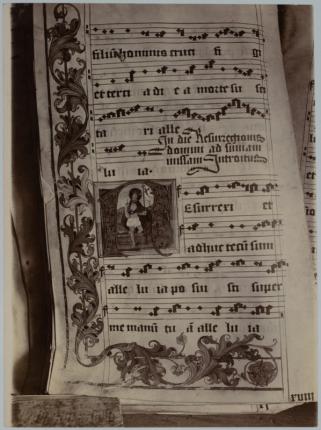 filiū hominis cruci fi gi
et terci a di e a morte su sci
ta ri alle
In die Resurrectionis
Domini ad sūmam
missam Introitus
lu ia.
Esurrexi et
adhuc tecū sum
alle lu ia po sui sti super
me manū tu ā alle lu ia
xviii